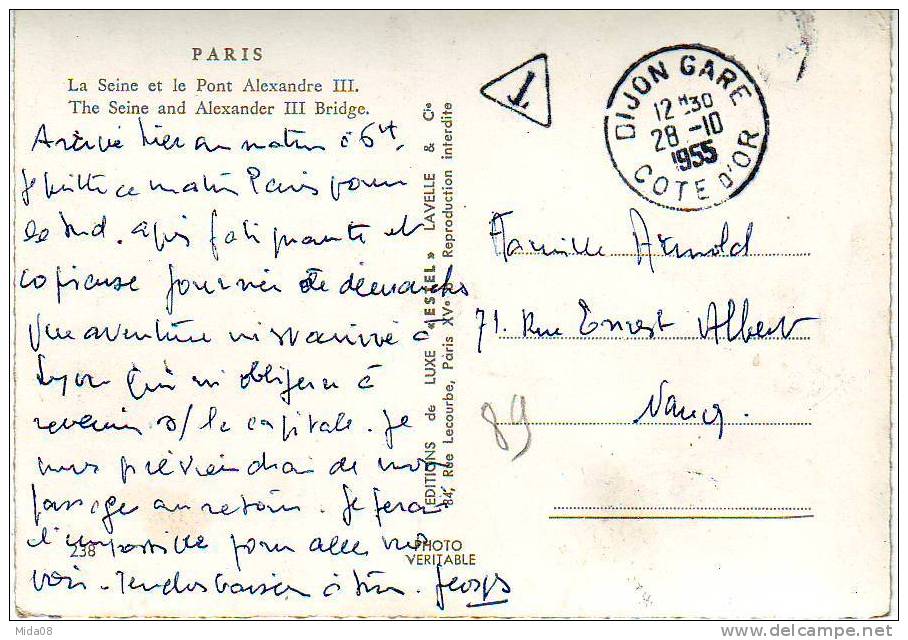 PARIS
La Seine et le Pont Alexandre III.
The Seine and Alexander III Bridge.
Arrivé hier au matin à 6H.
Je quitte ce matin Paris pour
le Sud. après fatiguante et
copieuse journée de démarches
Une aventure m'est arrivé à
Lyon qui m'obligera à
revenir s/ la capitale. Je
vous préviendrai de mon
passage au retour. Je ferai
l'impossible pour aller vous
voir. Tendres baisers à tous.
238
EDITIONS de LUXE "ESTEL" LAVELLE & Cie
84, Rue Lecourbe, Paris XVe Reproduction interdite
PHOTO
VERITABLE
T
DIJON GARE
12 H30
28 -10
1955
COTE D'OR
Famille Arnold
71. Rue Ernest Albert
Nancy.
89
Mida08
www.delcampe.net